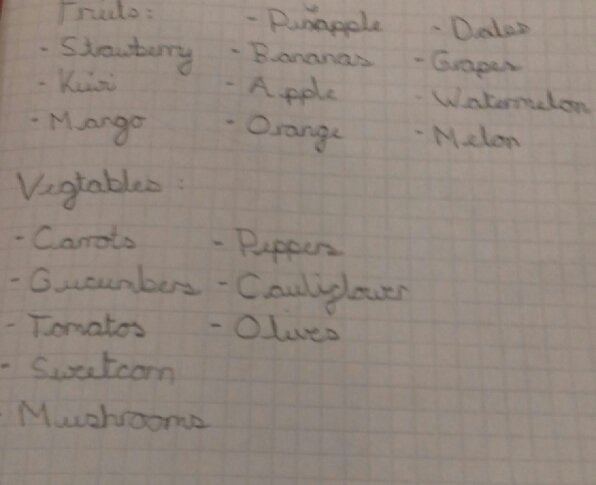 Fruits: - Pinapple - Dates
- Strawberry - Bananas - Grapes
- Kiwi - Apple - Watermelon
- Mango - Orange - Melon
Vegtables:
- Carrots - Peppers
- Cucumbers - Cauliflower
- Tomatos - Olives
- Sweetcorn
- Mushrooms